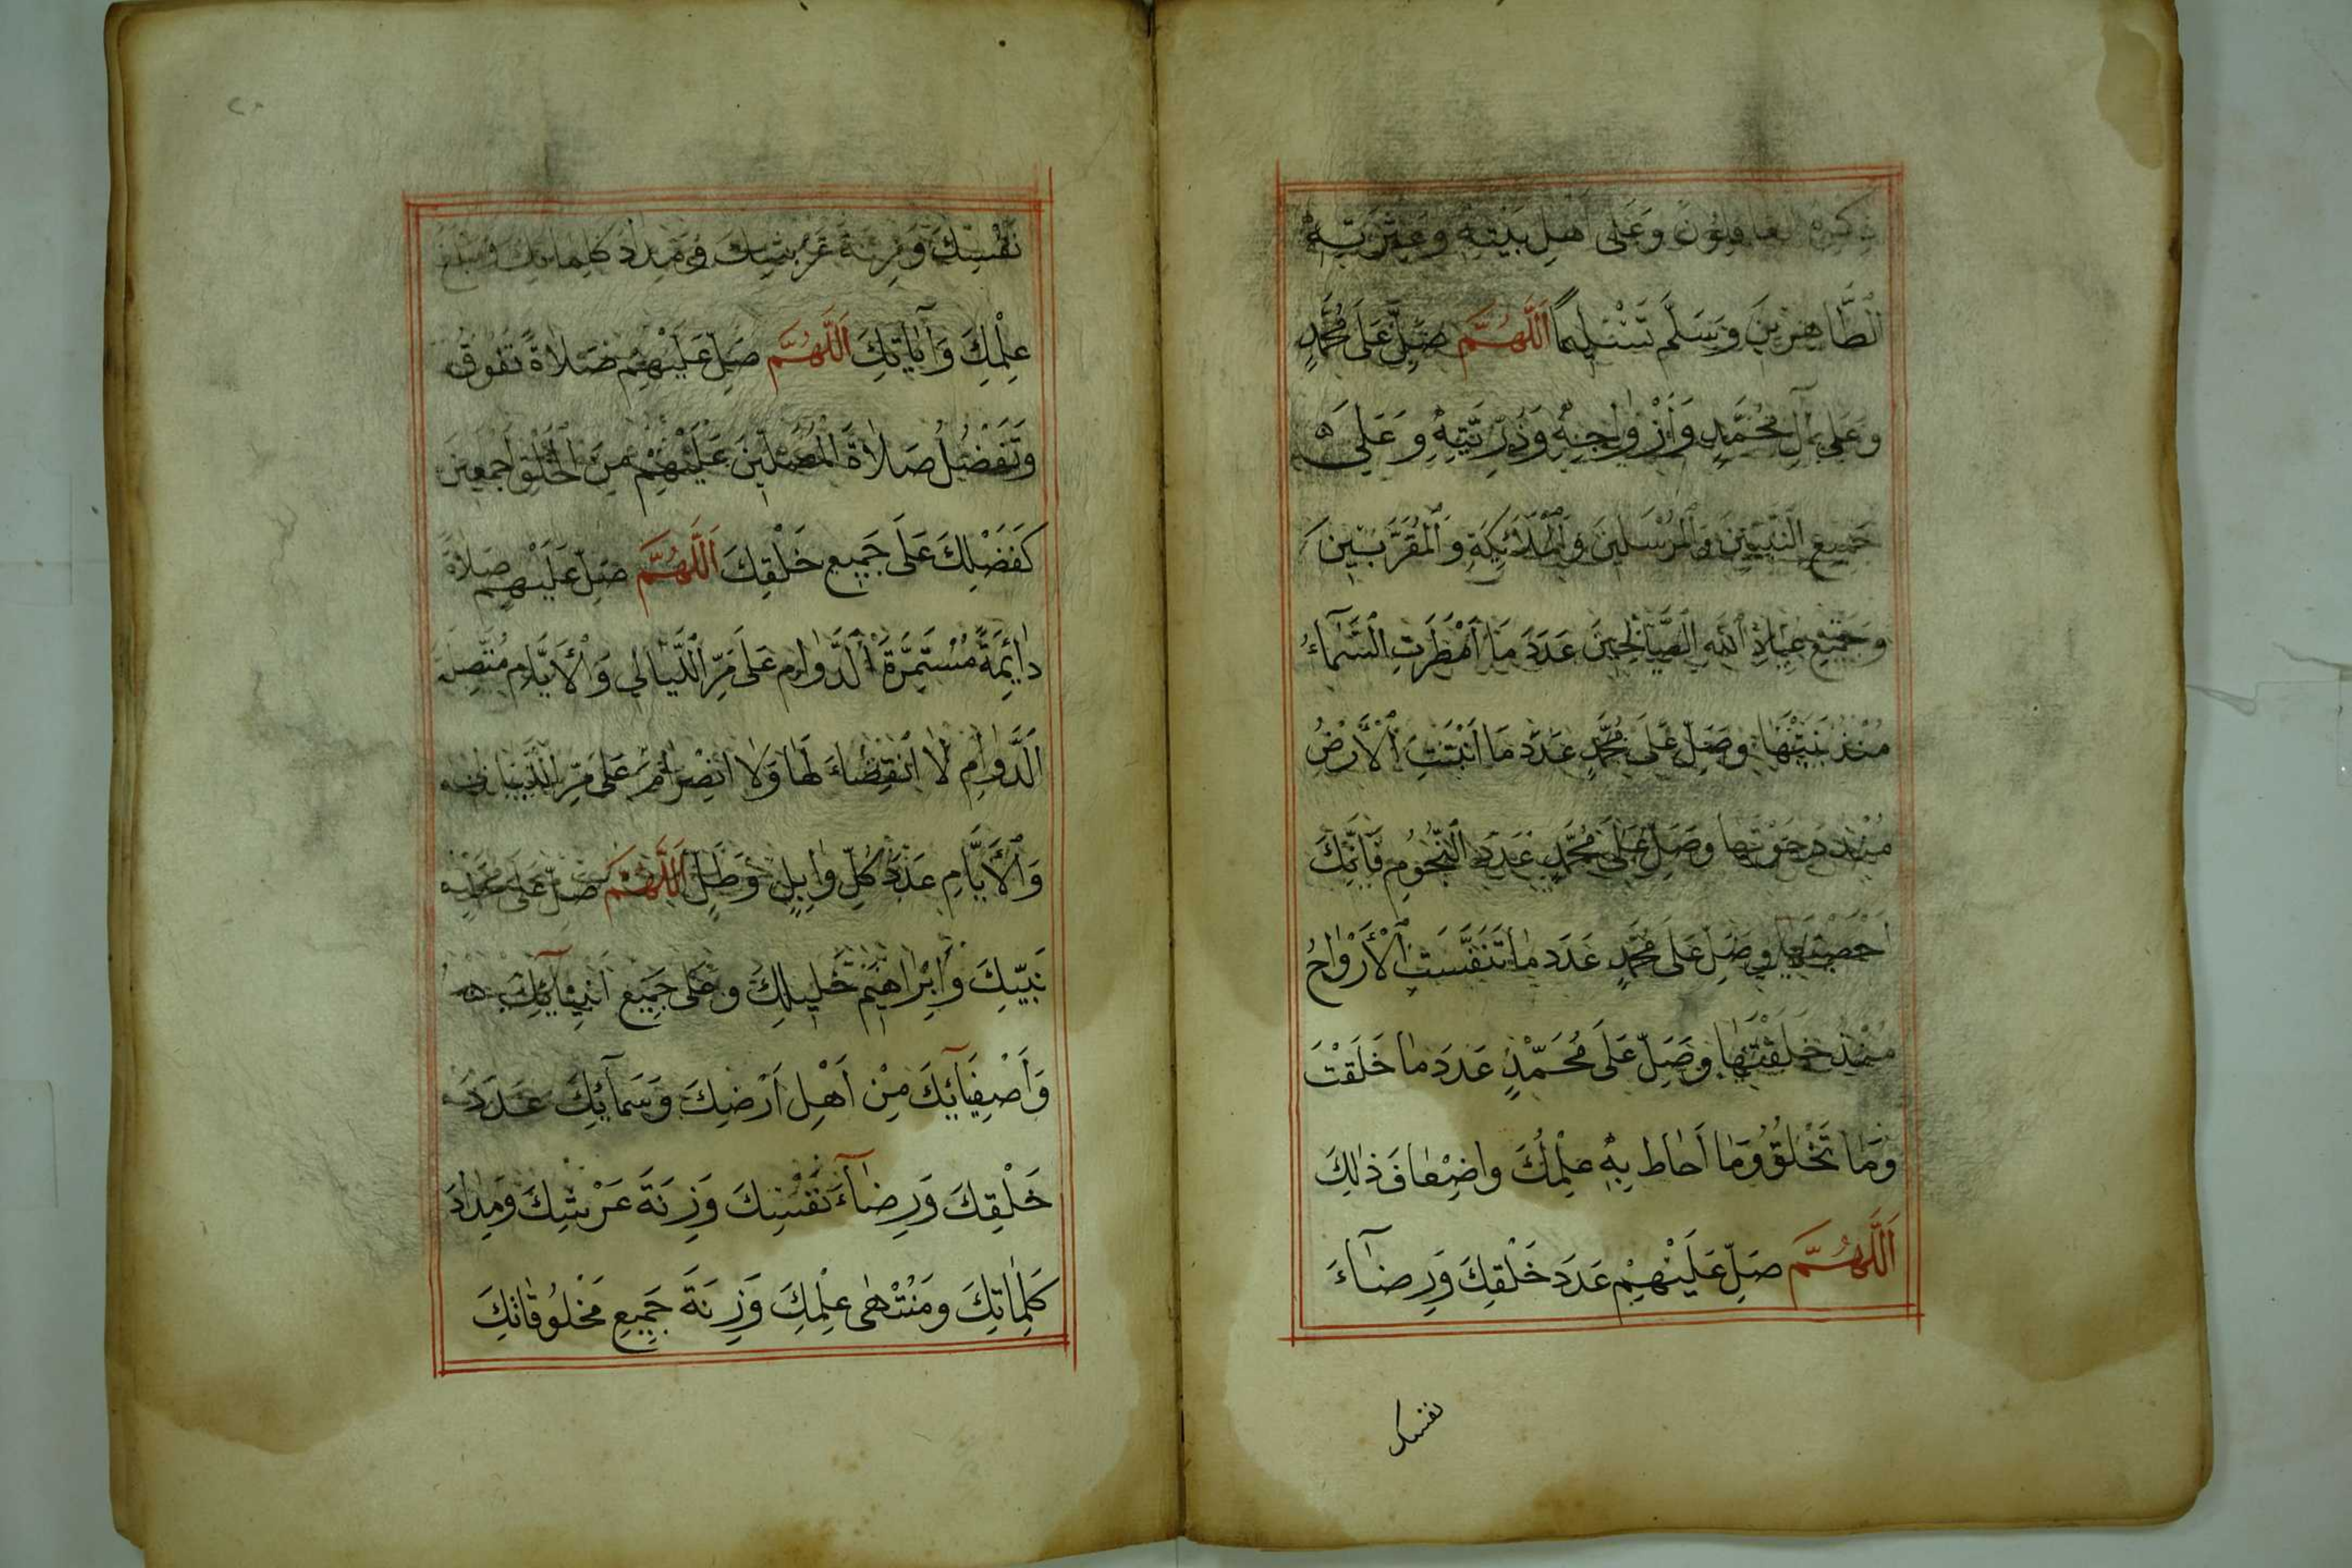 ذِكْرِهِ الغَافِلُونَ وَعَلَى اَهْلِ بَيْتِهِ وَعِتْرَتِهِ
الطَّاهِرِينَ وَسَلَّمَ تَسْلِيمًا اَللّٰهُمَّ صَلِّ عَلَى مُحَمَّدٍ
وَعَلَى آلِ مُحَمَّدٍ وَأَزْوَاجِهِ وَذُرِّيَّتِهِ وَعَلَى
جَمِيعِ النَّبِيِّينَ وَالْمُرْسَلِينَ وَالْمَلَائِكَةِ وَالْمُقَرَّبِينَ
وَجَمِيعِ عِبَادِ اللهِ الصَّالِحِينَ عَدَدَ مَا اَمْطَرَتِ السَّمَاءُ
مُنْذُ بَنَيْتَهَا وَصَلِّ عَلَى مُحَمَّدٍ عَدَدَ مَا اَنْبَتَتِ الْأَرْضُ
مُنْذُ دَحَوْتَهَا وَصَلِّ عَلَى مُحَمَّدٍ عَدَدَ النُّجُومِ فَاِنَّكَ
اَحْصَيْتَهَا وَصَلِّ عَلَى مُحَمَّدٍ عَدَدَ مَا تَنَفَّسَتِ الْأَرْوَاحُ
مُنْذُ خَلَقْتَهَا وَصَلِّ عَلَى مُحَمَّدٍ عَدَدَ مَا خَلَقْتَ
وَمَا تَخْلُقُ وَمَا اَحَاطَ بِهِ عِلْمُكَ وَاضْعَافَ ذٰلِكَ
اَللّٰهُمَّ صَلِّ عَلَيْهِمْ عَدَدَ خَلْقِكَ وَرِضَآءَ
نفسك
نَفْسِكَ وَزِنَةَ عَرْشِكَ وَمِدَادَ كَلِمَاتِكَ وَمَبْلَغَ
عِلْمِكَ وَآيَاتِكَ اَللّٰهُمَّ صَلِّ عَلَيْهِمْ صَلَاةً تَفُوقُ
وَتَفْضُلُ صَلَاةَ الْمُصَلِّينَ عَلَيْهِمْ مِنَ الْخَلْقِ اَجْمَعِينَ
كَفَضْلِكَ عَلَى جَمِيعِ خَلْقِكَ اَللّٰهُمَّ صَلِّ عَلَيْهِمْ صَلَاةً
دَائِمَةً مُسْتَمِرَّةَ الدَّوَامِ عَلَى مَرِّ اللَّيَالِي وَالْأَيَّامِ مُتَّصِلَةَ
الدَّوَامِ لَا انْقِضَاءَ لَهَا وَلَا انْصِرَامَ عَلَى مَرِّ اللَّيَالِي
وَالْأَيَّامِ عَدَدَ كُلِّ وَابِلٍ وَطَلٍّ اَللّٰهُمَّ صَلِّ عَلَى مُحَمَّدٍ
نَبِيِّكَ وَاِبْرَاهِيمَ خَلِيلِكَ وَعَلَى جَمِيعِ اَنْبِيَآئِكَ
وَاَصْفِيَآئِكَ مِنْ اَهْلِ اَرْضِكَ وَسَمَآئِكَ عَدَدَ
خَلْقِكَ وَرِضَآءَ نَفْسِكَ وَزِنَةَ عَرْشِكَ وَمِدَادَ
كَلِمَاتِكَ وَمُنْتَهَى عِلْمِكَ وَزِنَةَ جَمِيعِ مَخْلُوقَاتِكَ